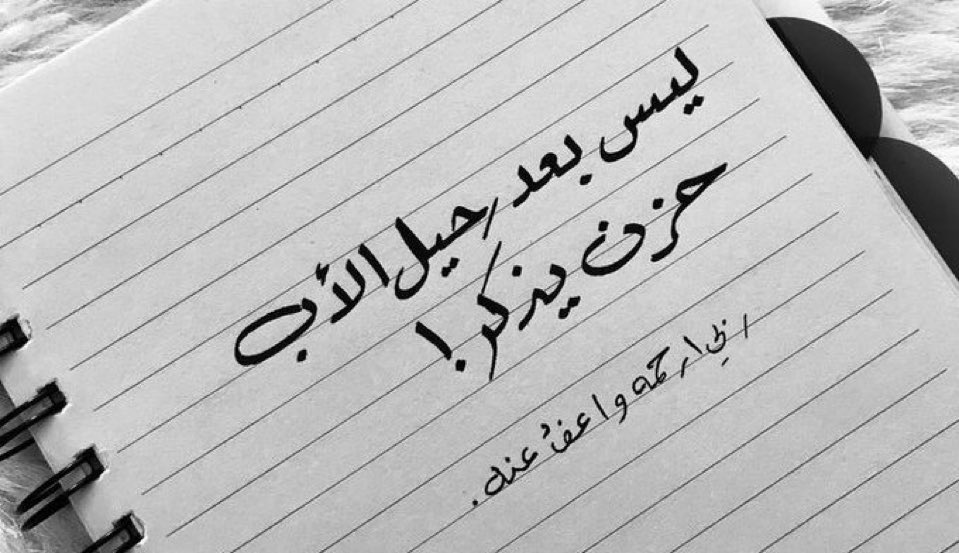 ليس بعد رحيل الأب
حزن يذكر!
ربي ارحمه واعفُ عنه.